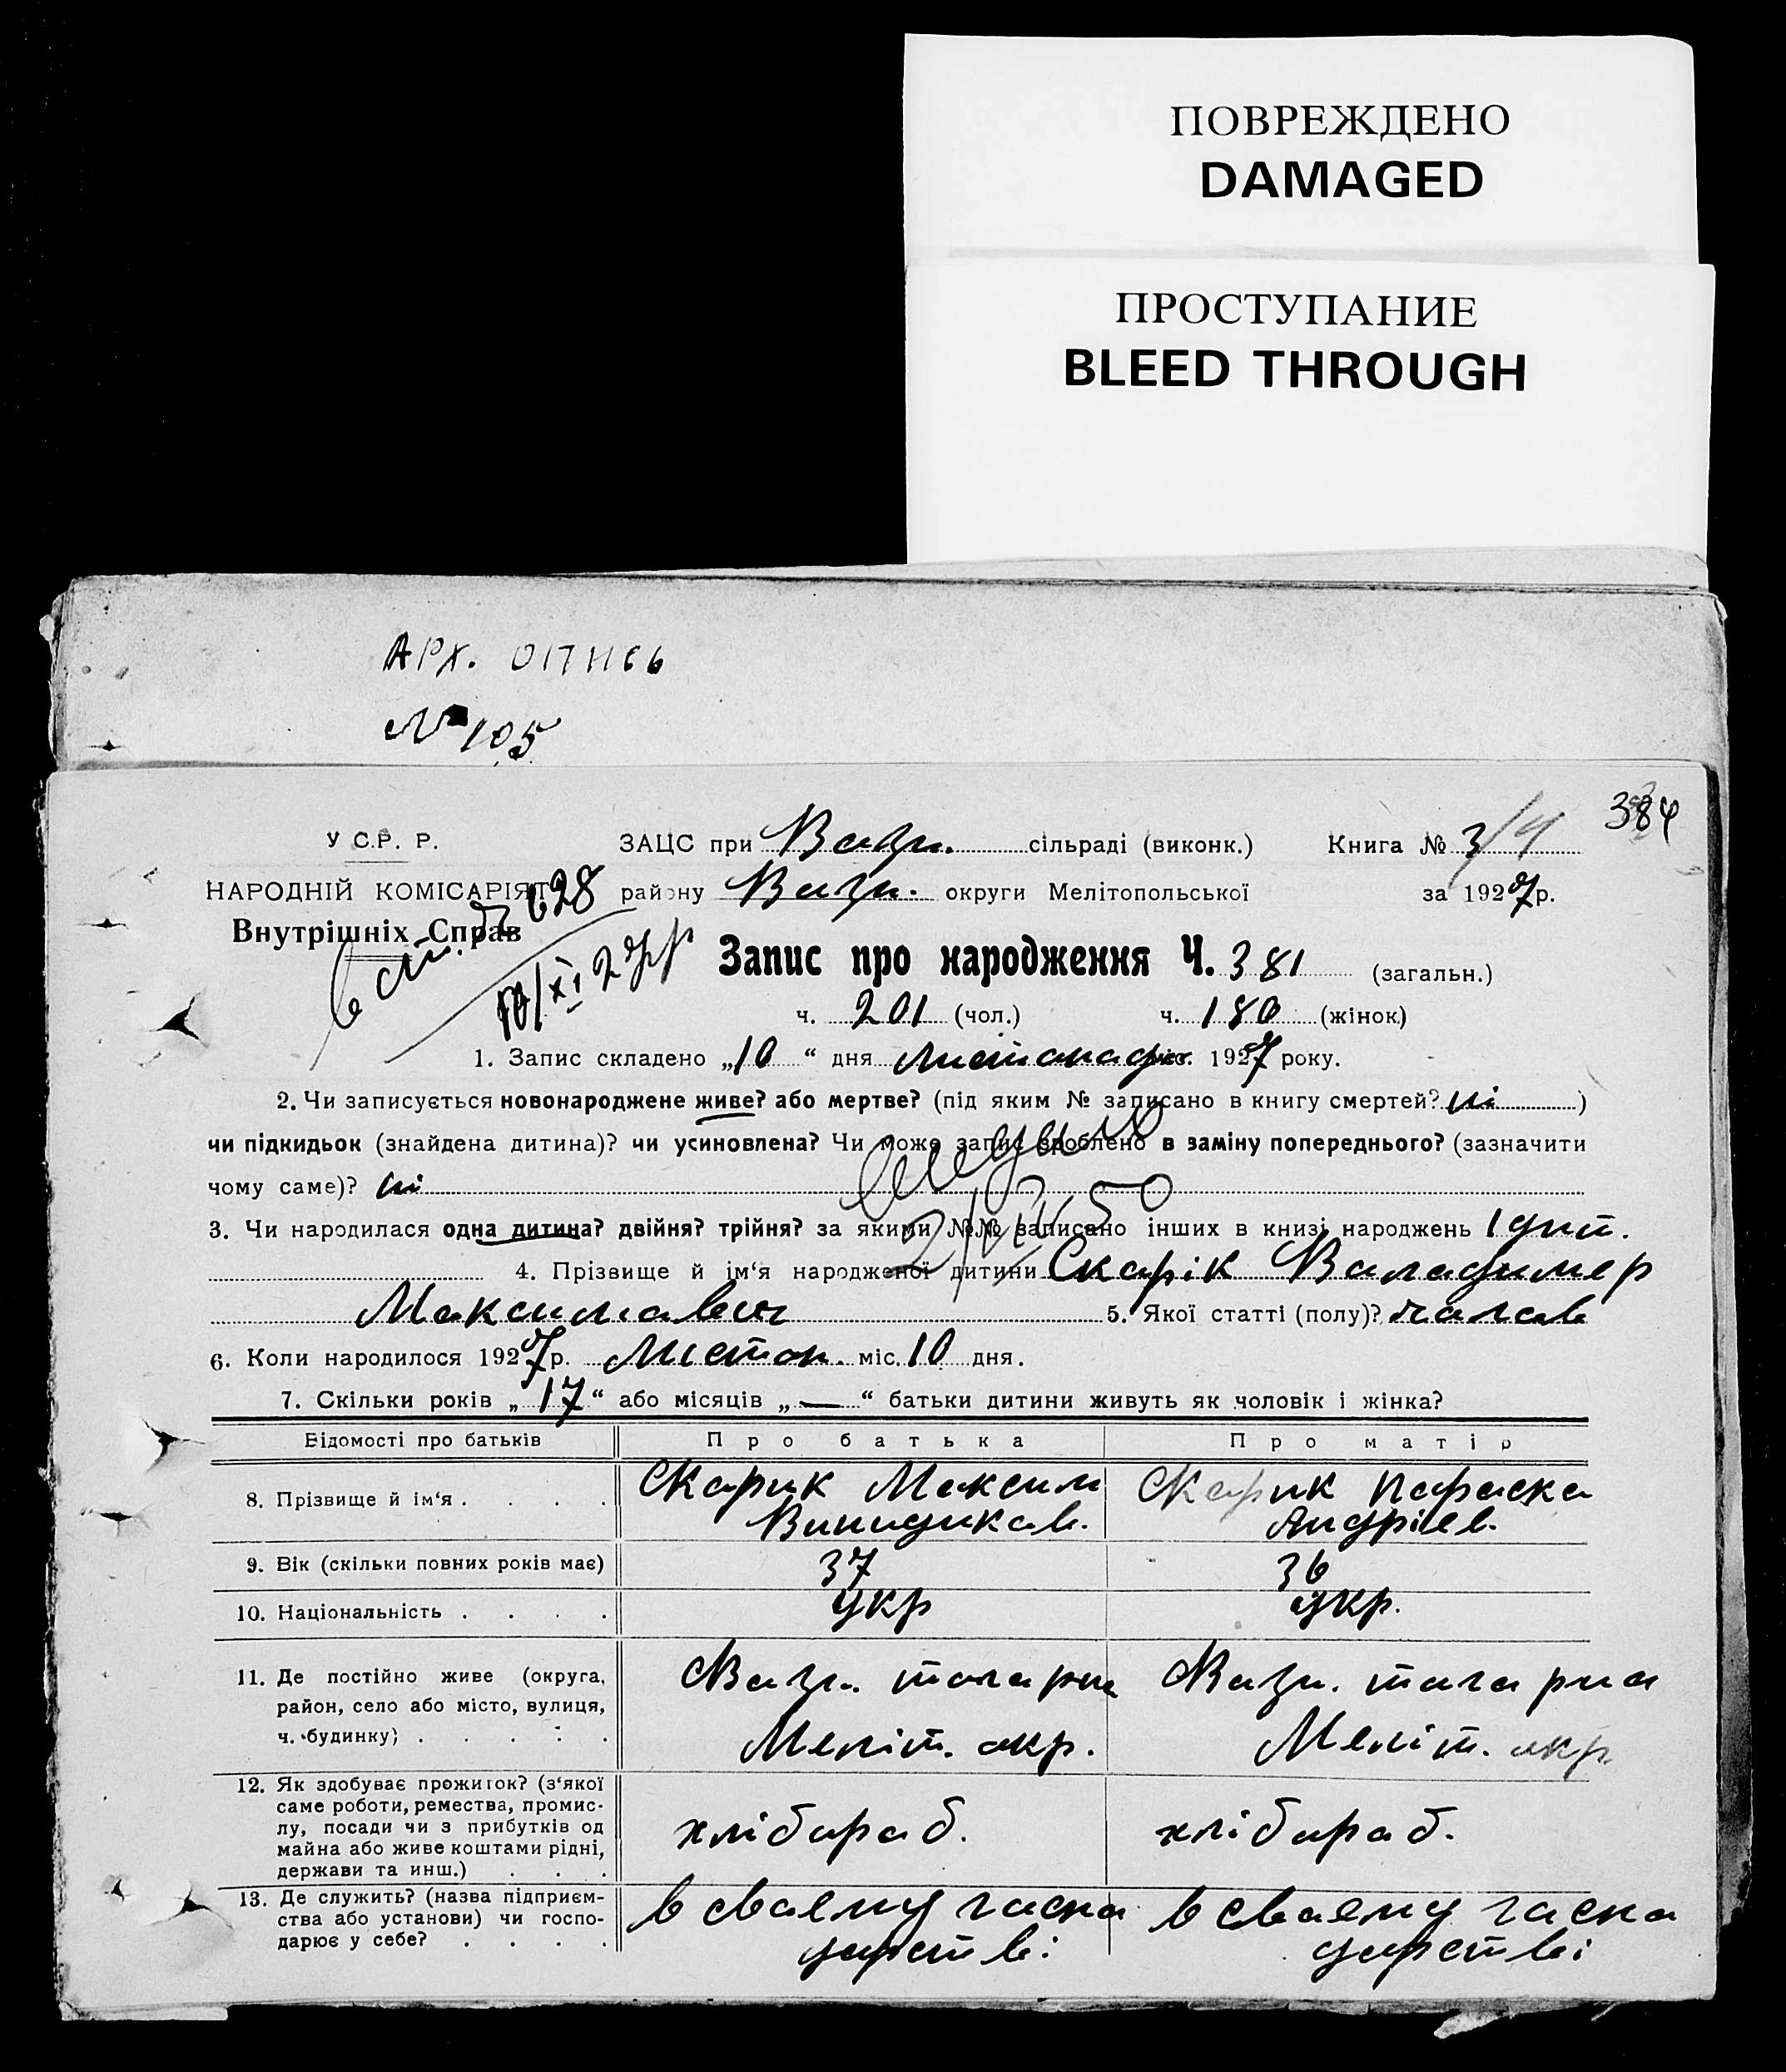 ПОВРЕЖДЕНО
DAMAGED
ПРОСТУПАНИЕ
BLEED THROUGH
АРХ. 0171166
№ 105
384
У С.Р. Р. ЗАЦС при Вазн. сільраді (виконк.) Книга № 3/4
НАРОДНІЙ КОМІСАРІЯТ району Вазн. округи Мелітопольської за 1927 р.
Внутрішніх Справ
628
10/XI 27 р
Запис про народження Ч. 381 (загальн.)
ч. 201 (чол.) ч. 180 (жінок)
1. Запис складено „10“ дня листопада міс. 1927 року.
2. Чи записується новонароджене живе? або мертве? (під яким № записано в книгу смертей? ні)
чи підкидьок (знайдена дитина)? чи усиновлена? Чи може запис зроблено в заміну попереднього? (зазначити
чому саме)? ні
3. Чи народилася одна дитина? двійня? трійня? за якими №№ записано інших в книзі народжень 1 дит.
4. Прізвище й ім‘я народженої дитини Скарік Валадимер
Максимавич 5. Якої статті (полу)? чалов
6. Коли народилося 1927 р. Листоп. міс. 10 дня.
7. Скільки років „17“ або місяців „—“ батьки дитини живуть як чоловік і жінка?
Відомості про батьків Про батька Про матір
8. Прізвище й ім‘я . . . . Скарик Максим Скарик Параска
Андріев.
9. Вік (скільки повних років має) 37 36
10. Національність . . . . укр укр.
11. Де постійно живе (округа, Вазн. тога рна Вазн. тога рна
район, село або місто, вулиця,
ч. будинку) . . . . . Меліт. окр. Меліт. окр.
12. Як здобуває прожиток? (з‘якої
саме роботи, ремества, промис-
лу, посади чи з прибутків од хлібараб. хлібараб.
майна або живе коштами рідні,
держави та инш.) . . .
13. Де служить? (назва підприєм- в сваему гаспа в сваему гаспа
ства або установи) чи госпо-
дарює у себе? . . . . дарстві дарстві